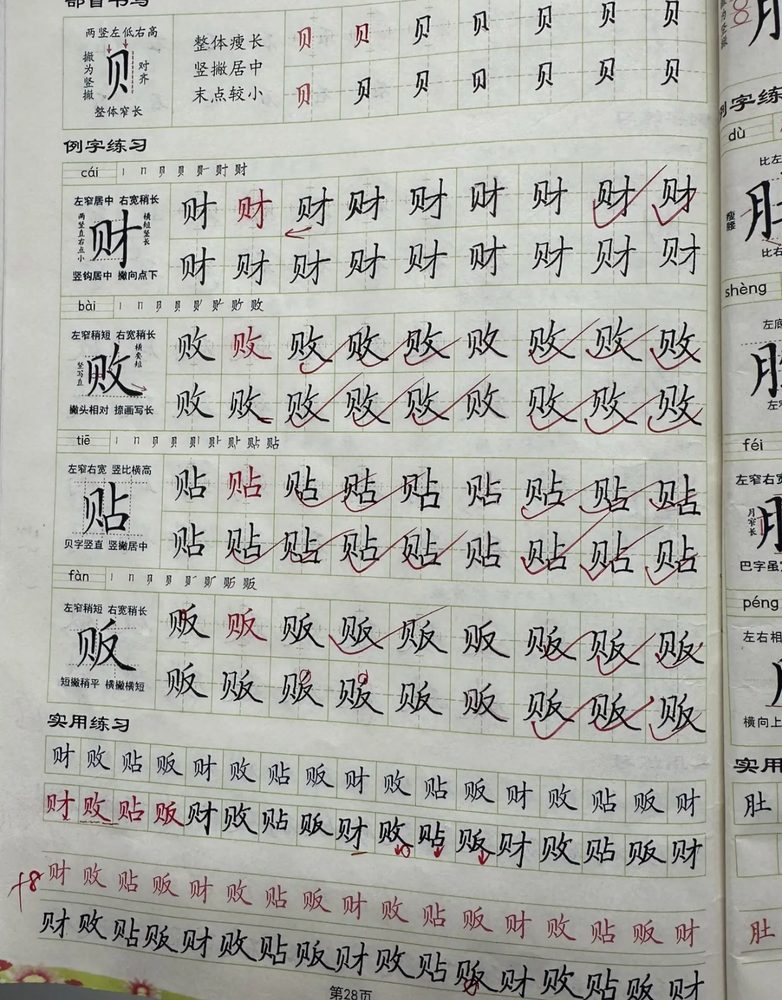 部首书写
两竖左低右高
撇为竖撇
贝
对齐
整体窄长
整体瘦长
竖撇居中
末点较小
贝 贝 贝 贝 贝 贝 贝
贝 贝 贝 贝 贝 贝 贝
例字练习
cái
左窄居中 右宽稍长
两竖直右点小
财
横短竖长
竖钩居中 撇向点下
财 财 财 财 财 财 财 财 财
财 财 财 财 财 财 财 财 财
bài
左窄稍短 右宽稍长
竖写直
败
横要短
撇头相对 捺画写长
败 败 败 败 败 败 败 败 败
败 败 败 败 败 败 败 败 败
tiē
左窄右宽 竖比横高
贴
贝字竖直 竖撇居中
贴 贴 贴 贴 贴 贴 贴 贴 贴
贴 贴 贴 贴 贴 贴 贴 贴 贴
fàn
左窄稍短 右宽稍长
贩
短撇稍平 横撇横短
贩 贩 贩 贩 贩 贩 贩 贩 贩
贩 贩 贩 贩 贩 贩 贩 贩 贩
实用练习
财 败 贴 贩 财 败 贴 贩 财 败 贴 贩 财 败 贴 贩 财
财 败 贴 贩 财 败 贴 贩 财 败 贴 贩 财 败 贴 贩 财
+8
财 败 贴 贩 财 败 贴 贩 财 败 贴 贩 财 败 贴 贩 财
财 败 贴 贩 财 败 贴 贩 财 败 贴 贩 财 败 贴 贩 财
第28页
例字练
dù
比左
肚
比右
shèng
左底
左窄
féi
左窄右宽
月窄长
巴字虽宽
péng
左右相
横向上
实用
肚
肚